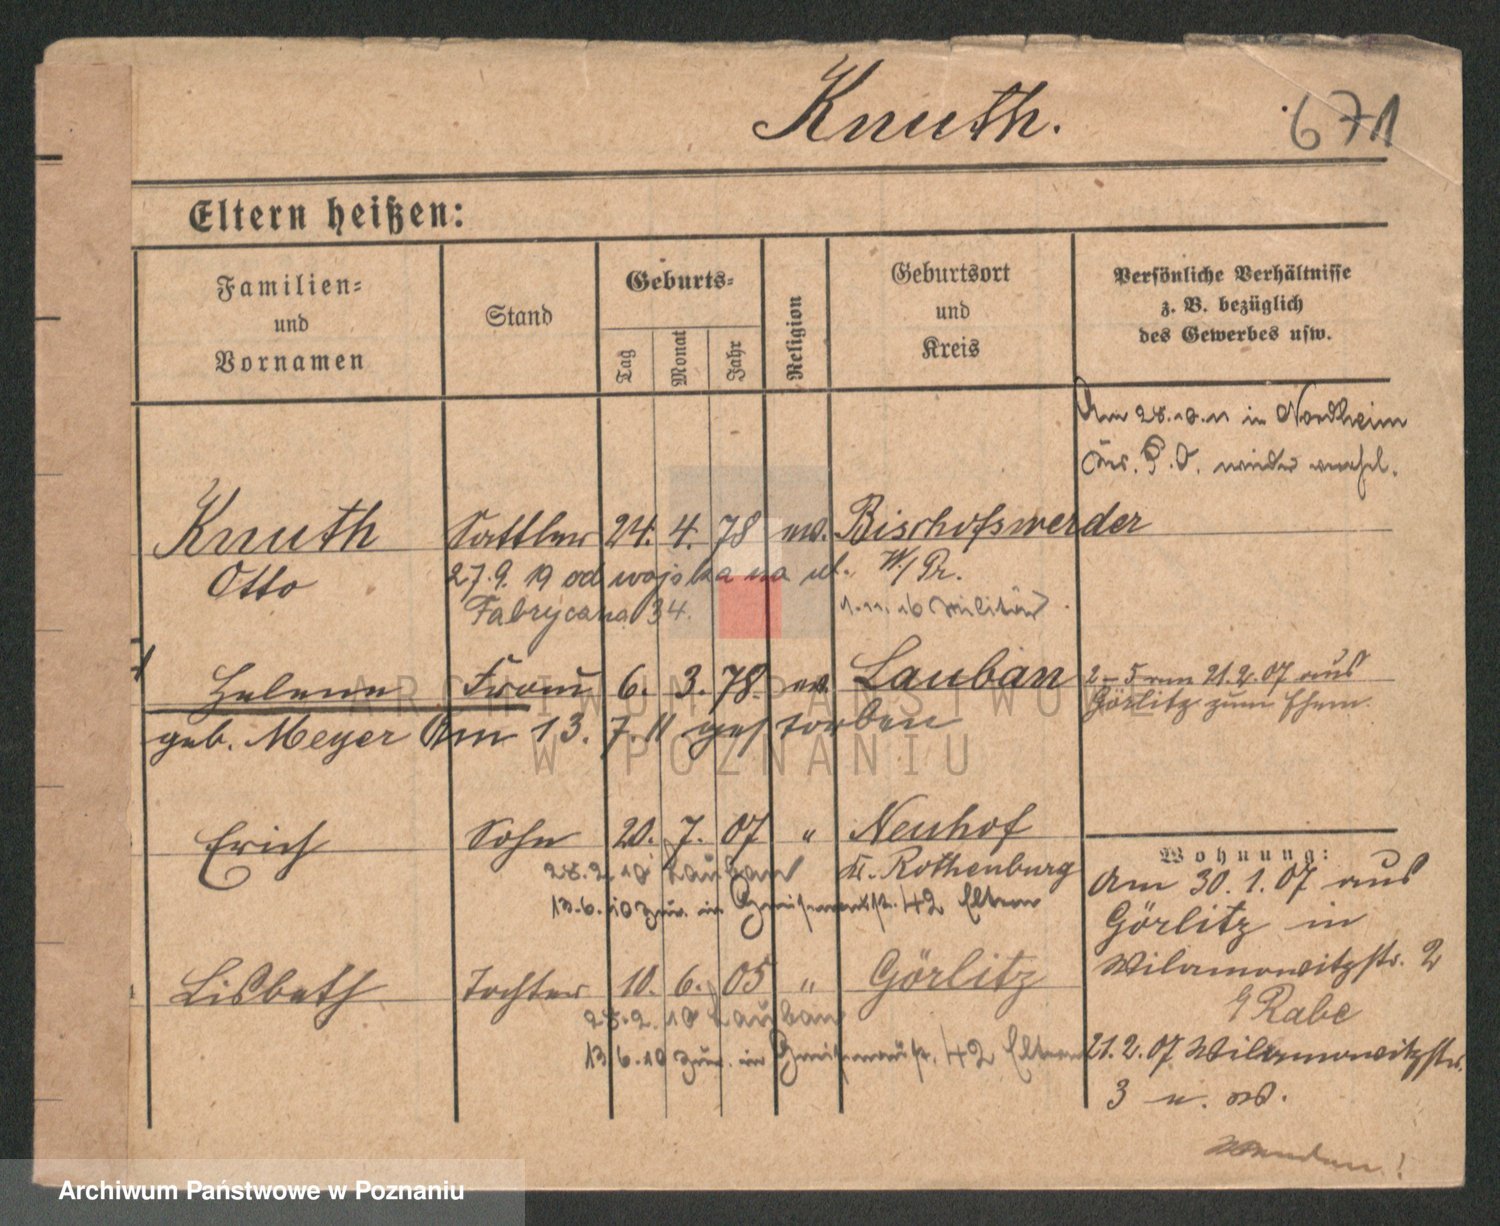 Knuth.
671
Eltern heißen:
Familien-
und
Vornamen
Stand
Geburts-
Tag
Monat
Jahr
Religion
Geburtsort
und
Kreis
Persönliche Verhältnisse
z. B. bezüglich
des Gewerbes usw.
Am 28.10.11 in Nordheim
wieder
Knuth Sattler 24. 4. 78 ev. Bischofswerder
Otto 27.9.19 od wojska na ul. W/Pr.
Fabryczna 34. 1.11.16 Militär
Helene Frau 6. 3. 78. ev. Lauban
2-5 21.2.07 aus
Görlitz zum Ehem.
geb. Meyer Am 13. 7. 11 gestorben
Erich Sohn 20. 7. 07 " Neuhof
28.2.10 Lauban Kr. Rothenburg
13.6.10 zur. in Gneisenaustr. 42 Eltern
Lisbeth Tochter 10. 6. 05 " Görlitz
28.2.10 Lauban
13.6.10 zur. in Gneisenaustr. 42 Eltern
Wohnung:
Am 30.1.07 aus
Görlitz in
Wilamowitzstr. 2
b/ Rabe
21.2.07 Wilamowitzstr.
3 u. W.
Wenden!
ARCHIWUM PAŃSTWOWE
W POZNANIU
Archiwum Państwowe w Poznaniu